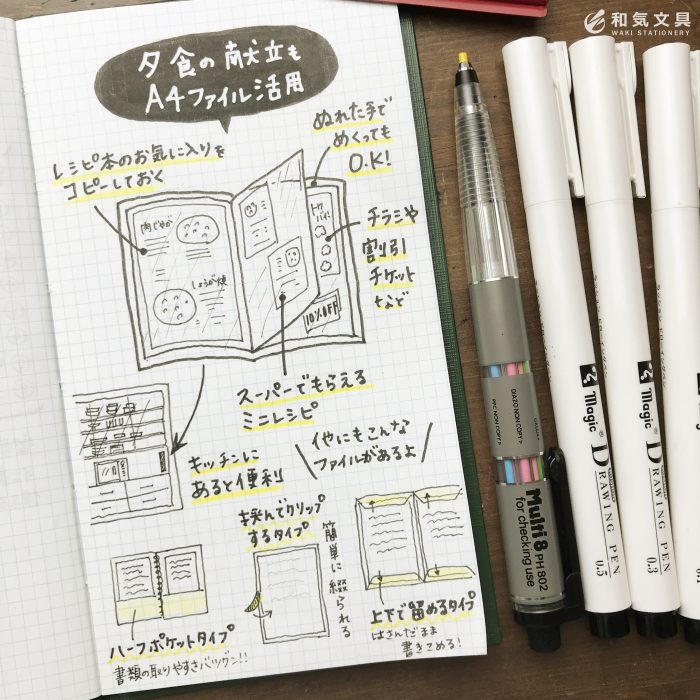 和気文具
WAKI STATIONERY
夕食の献立も
A4ファイル活用
レシピ本のお気に入りを
コピーしておく
ぬれた手で
めくっても
O.K!
肉じゃが
しょうが焼
トクバイ
10%OFF
チラシや
割引
チケット
など
スーパーでもらえる
ミニレシピ
キッチンに
あると便利
他にもこんな
ファイルがあるよ
挟んでクリップ
するタイプ
簡単に綴られる
上下で留めるタイプ
はさんだまま
書きこめる!
ハーフポケットタイプ
書類の取りやすさバツグン!!
DIAZO NON COPY
PPC NON COPY
Multi 8 PH 802
for checking use
Magic
DRAWING PEN
0.5
Magic
DRAWING PEN
0.3
Magic
DRAWING PEN